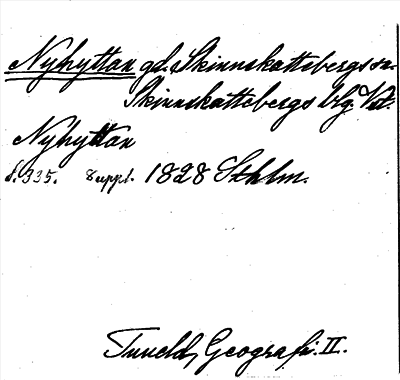 Nyhyttan gd. Skinnskattebergs sn.
Skinnskattebergs blg. Vstm.
Nyhyttan
s. 335. Suppl. 1828 Sthlm.
Tuneld, Geografi. II.